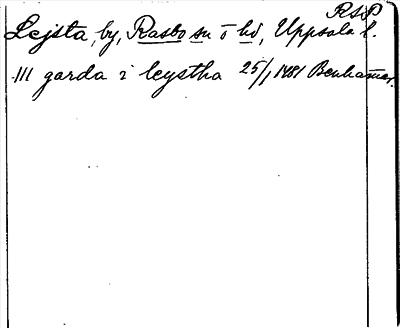 RSP
Lejsta, by, Rasbo sn o hd, Uppsala l.
III garda i leystha 25/1 1481 Benhamar.